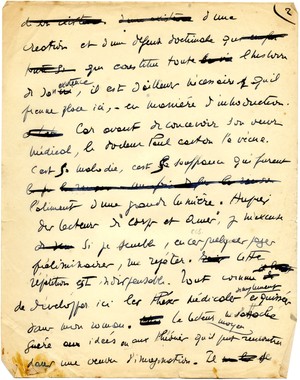 2
d'une
création et d'une défense doctrinale
qui constitue toute l'histoire
de son existence, il est d'ailleurs nécessaire qu'il
prenne place ici, en manière d'introduction.
Car avant de concevoir son œuvre
médical, le docteur Paul Carton l'a vécue.
C'est sa maladie, c'est sa souffrance qui furent
l'aliment d'une grande lumière. Auprès
des lecteurs d'"Corps et Ames", je m'excuse
si je semble, en ces quelques pages
préliminaires, me répéter. Cette
répétition est indispensable. Tout comme
de développer ici les thèses médicales
dans mon roman. Le lecteur moyen s'attache
guère aux idées ou aux théories qu'il peut rencontrer
dans une œuvre d'imagination. Le